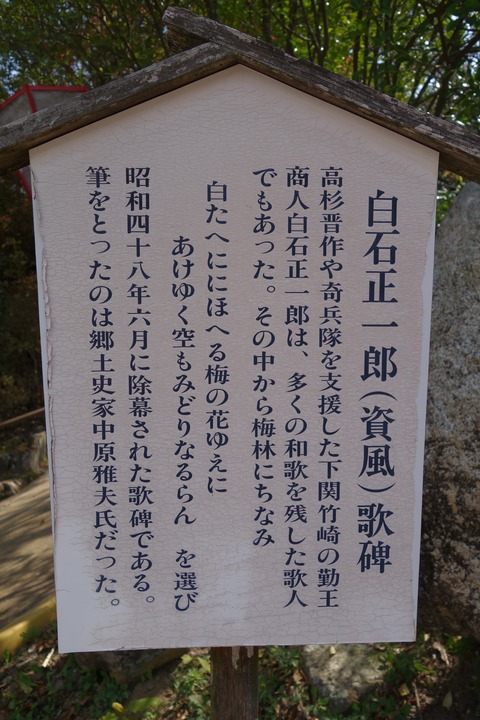 白石正一郎(資風)歌碑
高杉晋作や奇兵隊を支援した下関竹崎の勤王
商人白石正一郎は、多くの和歌を残した歌人
でもあった。その中から梅林にちなみ
白たへににほへる梅の花ゆえに
あけゆく空もみどりなるらん を選び
昭和四十八年六月に除幕された歌碑である。
筆をとったのは郷土史家中原雅夫氏だった。